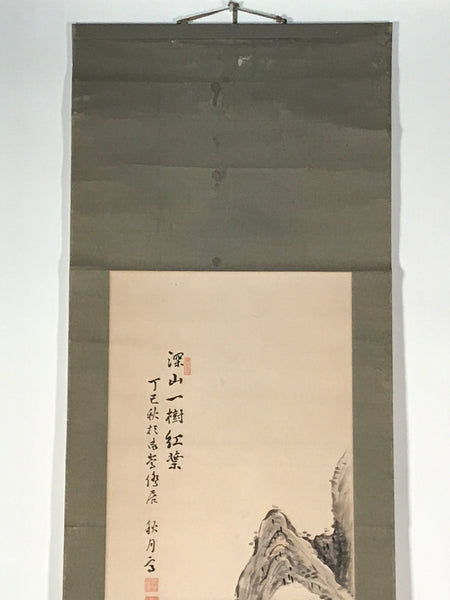 深山一樹紅葉
丁巳秋於 居 秋月写